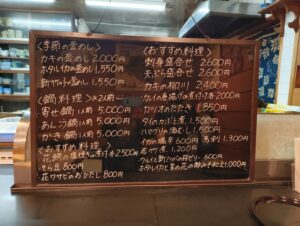 〈季節の釜めし〉
カキの釜めし 2000円
ホタルイカの釜めし 1,550円
新竹の子の釜めし 1,550円
〈鍋料理〉※2人前〜
寄せ鍋 1人前 5,000円
あんこう鍋 1人前 5,000円
かき鍋 1人前 5,000円
〈おすすめ料理〉
花鯛の塩焼き 2500円
そら豆 800円
花ワサビのおひたし 800円
〈おすすめ料理〉
刺身盛合せ 2600円
天ぷら盛合せ 2600円
カキの柳川 2,400円
2,200円
カツオのたたき 1,850円
タイのカブト煮 1,500円
ハマグリの酒むし 1,500円
馬刺 1,300円
若竹煮 1,200円
600円
ホタルイカと菜の花の酢みそ和え 1,000円